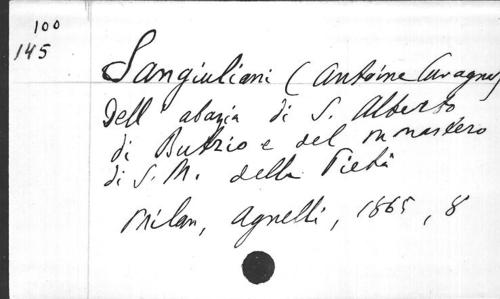 100
145
Sangiuliani (Antoine Cavagna)
Dell abazia di S. Alberto
di Butrio e del monastero
di S. M. della Pietà
Milan, Agnelli, 1865, 8